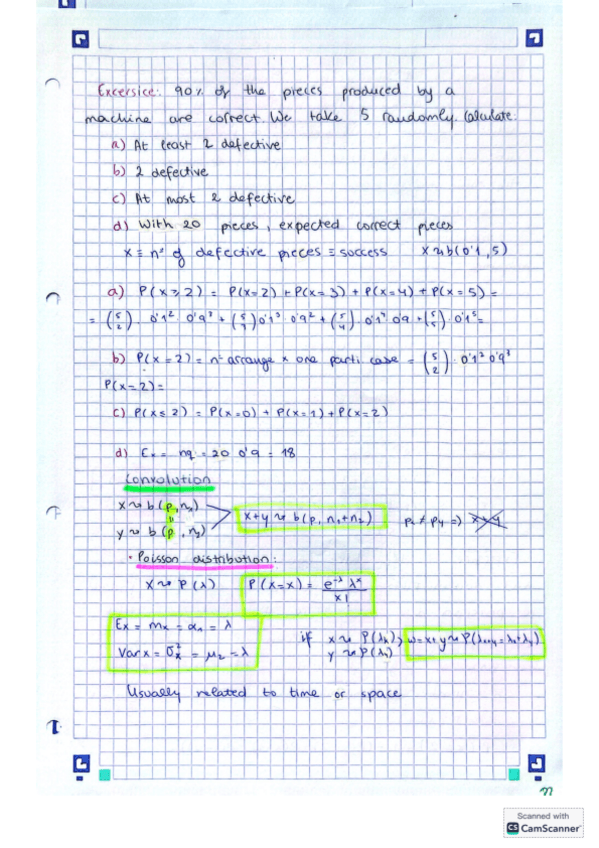 Excersice: 90% of the pieces produced by a
machine are correct. We take 5 randomly. Calculate:
a) At least 2 defective
b) 2 defective
c) At most 2 defective
d) With 20 pieces, expected correct pieces
x ≡ nº of defective pieces ≡ success x ~ b(0'1, 5)
a) P(x ≥ 2) = P(x=2) + P(x=3) + P(x=4) + P(x=5) =
= (5 2) · 0'1² · 0'9³ + (5 3) 0'1³ · 0'9² + (5 4) 0'1⁴ · 0'9 + (5 5) · 0'1⁵ =
b) P(x=2) = nº arrange × one parti. case = (5 2) · 0'1² 0'9³
P(x=2) =
c) P(x ≤ 2) = P(x=0) + P(x=1) + P(x=2)
d) Ex = nq = 20 0'9 = 18
Convolution
x ~ b(p, n₁)
y ~ b(p, n₂)
x+y ~ b(p, n₁+n₂) Px ≠ Py => x+y
· Poisson distribution:
x ~ P(λ) P(x=x) = e^-λ λ^x / x!
Ex = mx = α₁ = λ
Var x = σx² = μ₂ = λ
if x ~ P(λx); w = x+y ~ P(λx+y = λx+λy)
y ~ P(λy)
Usually related to time or space
Scanned with
CS CamScanner